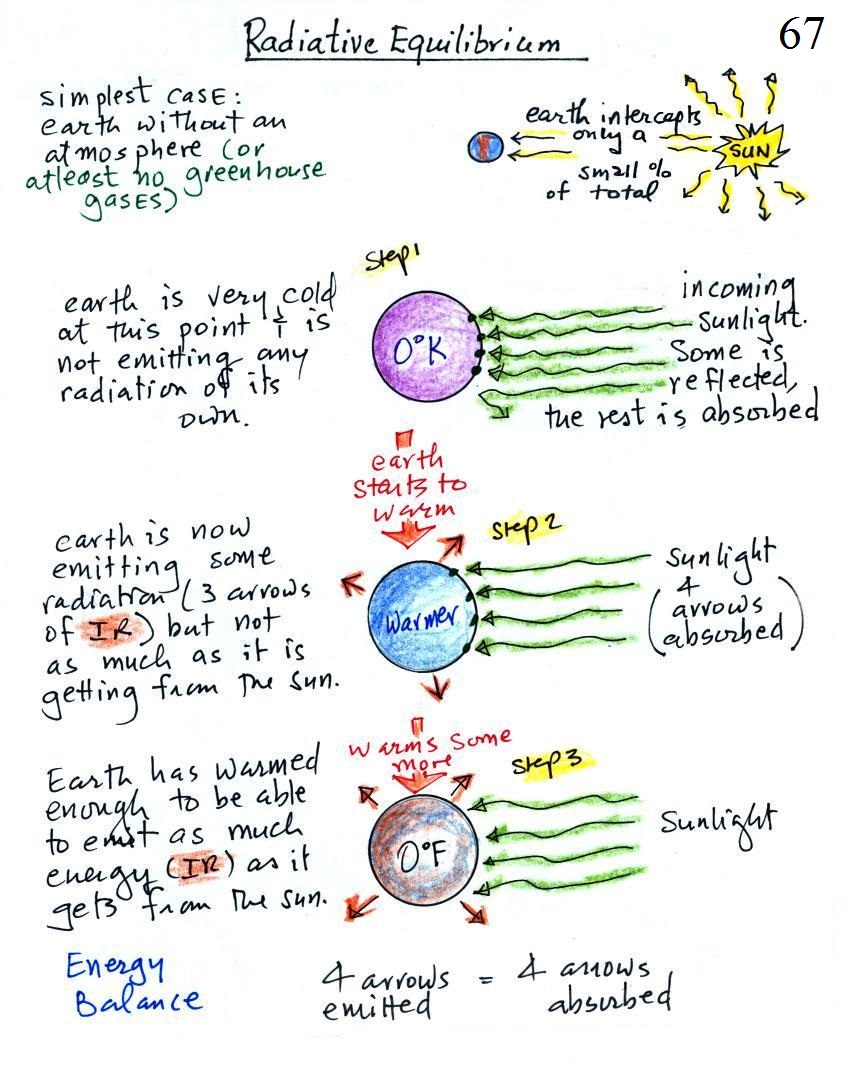 Radiative Equilibrium
67
simplest case:
earth without an
atmosphere (or
atleast no greenhouse
gases)
earth intercepts
only a
small %
of total
SUN
Step 1
earth is very cold
at this point & is
not emitting any
radiation of its
own.
0°K
incoming
sunlight.
Some is
reflected,
the rest is absorbed
earth
starts to
warm
Step 2
earth is now
emitting some
radiation (3 arrows
of IR) but not
as much as it is
getting from the sun.
Warmer
Sunlight
4
arrows
absorbed
warms some
more
Step 3
Earth has warmed
enough to be able
to emit as much
energy (IR) as it
gets from the sun.
0°F
Sunlight
Energy
Balance
4 arrows = 4 arrows
emitted absorbed